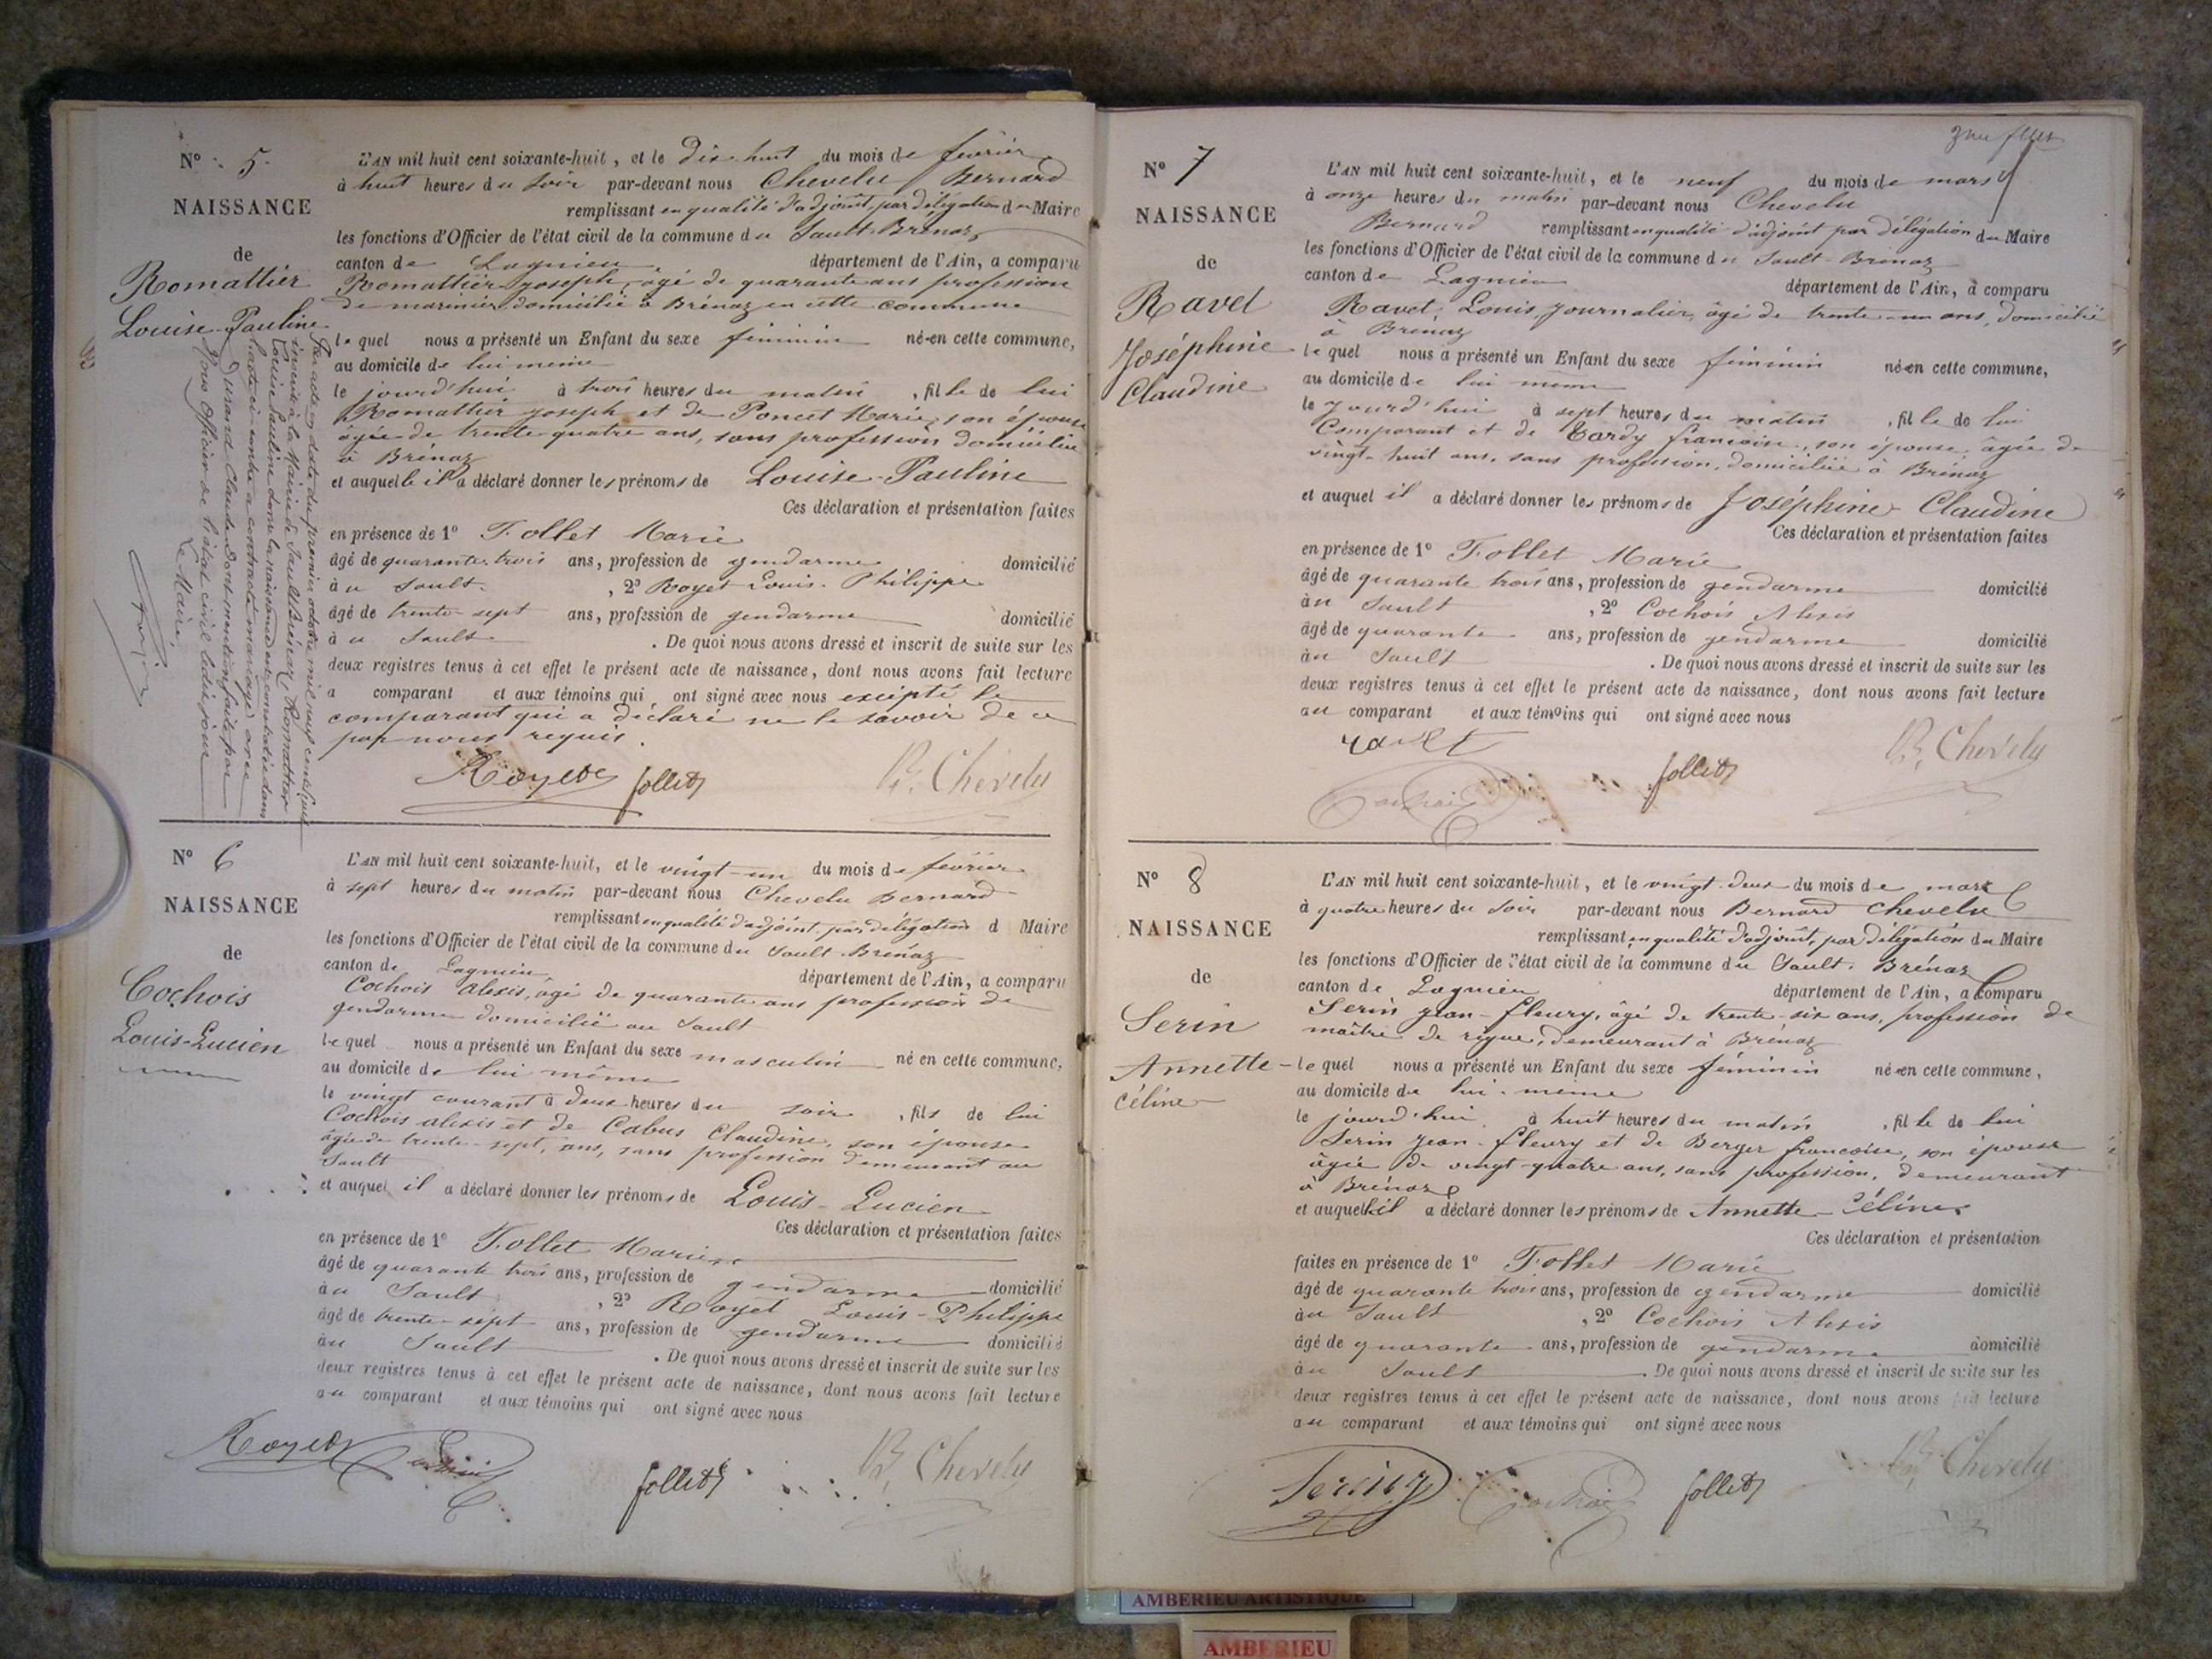 N° 5.
NAISSANCE
de
Romattier
Louise-Pauline
L'AN mil huit cent soixante-huit, et le dix-huit du mois de février
à huit heures du soir par-devant nous Chevelu Bernard
remplissant en qualité d'adjoint, par délégation du Maire
les fonctions d'Officier de l'état civil de la commune du Sault-Brénaz
canton de Lagnieu département de l'Ain, a comparu
Romattier Joseph, âgé de quarante ans profession
de marinier domicilié à Brénaz en cette commune
lequel nous a présenté un Enfant du sexe féminin né en cette commune,
au domicile de lui même
le jourd'hui à trois heures du matin, fille de lui
Romattier Joseph et de Poncet Marie, son épouse
âgée de trente-quatre ans, sans profession domiciliée
à Brénaz
et auquelle il a déclaré donner les prénoms de Louise-Pauline
Ces déclaration et présentation faites
en présence de 1° Follet Marie
âgé de quarante trois ans, profession de gendarme domicilié
à u Sault. , 2° Royet Louis-Philippe
âgé de trente-sept ans, profession de gendarme domicilié
à u Sault . De quoi nous avons dressé et inscrit de suite sur les
deux registres tenus à cet effet le présent acte de naissance, dont nous avons fait lecture
a comparant et aux témoins qui ont signé avec nous excipté le
comparant qui a déclaré ne le savoir de ce
par nous requis.
Royet follet B. Chevelu
Par acte en date du premier octobre mil neuf cent
inscrit à la Mairie de Sault-Brénaz, Romattier
Louise Pauline dont la naissance est constatée dans
l'acte ci-contre a contracté mariage avec
Claude dont mention faite par
Nous Officier de l'état civil ledit jour
Le Maire,
N° 6
NAISSANCE
de
Cochois
Louis-Lucien
L'AN mil huit cent soixante-huit, et le vingt-un du mois de février
à sept heures du matin par-devant nous Chevelu Bernard
remplissant en qualité d'adjoint, par délégation d Maire
les fonctions d'Officier de l'état civil de la commune du Sault-Brénaz
canton de Lagnieu département de l'Ain, a comparu
Cochois Alexis, âgé de quarante ans profession de
gendarme domicilié au Sault
lequel nous a présenté un Enfant du sexe masculin né en cette commune,
au domicile de lui même
le vingt courant à deux heures du soir, fils de lui
Cochois alexis et de Cabus Claudine, son épouse
âgée de trente-sept, ans, sans profession demeurant au
Sault
et auquel il a déclaré donner les prénoms de Louis-Lucien
Ces déclaration et présentation faites
en présence de 1° Follet Marie
âgé de quarante trois ans, profession de gendarme domicilié
à u Sault , 2° Royet Louis-Philippe
âgé de trente-sept ans, profession de gendarme domicilié
à u Sault . De quoi nous avons dressé et inscrit de suite sur les
deux registres tenus à cet effet le présent acte de naissance, dont nous avons fait lecture
au comparant et aux témoins qui ont signé avec nous
Royet Cochois follet B. Chevelu
N° 7
NAISSANCE
de
Ravet
Joséphine
Claudine
L'AN mil huit cent soixante-huit, et le neuf du mois de mars
à onze heures du matin par-devant nous Chevelu
Bernard remplissant en qualité d'adjoint par délégation du Maire
les fonctions d'Officier de l'état civil de la commune du Sault-Brénaz
canton de Lagnieu département de l'Ain, a comparu
Ravet, Louis journalier, âgé de trente-un ans, domicilié
à Brénaz
lequel nous a présenté un Enfant du sexe féminin né en cette commune,
au domicile de lui même
le jourd'hui à sept heures du matin, fille de lui
Comparant et de Tardy françoise, son épouse, âgée de
vingt-huit ans, sans profession, domiciliée à Brénaz
et auquel il a déclaré donner les prénoms de Joséphine-Claudine
Ces déclaration et présentation faites
en présence de 1° Follet Marie
âgé de quarante trois ans, profession de gendarme domicilié
à u Sault , 2° Cochois Alexis
âgé de quarante ans, profession de gendarme domicilié
à u Sault . De quoi nous avons dressé et inscrit de suite sur les
deux registres tenus à cet effet le présent acte de naissance, dont nous avons fait lecture
au comparant et aux témoins qui ont signé avec nous
ravet B. Chevelu
Cochois follet
N° 8
NAISSANCE
de
Serin
Annette-
Céline
L'AN mil huit cent soixante-huit, et le vingt-deux du mois de mars
à quatre heures du soir par-devant nous Bernard Chevelu
remplissant, en qualité d'adjoint, par délégation du Maire
les fonctions d'Officier de l'état civil de la commune du Sault-Brénaz
canton de Lagnieu département de l'Ain, a Comparu
Serin jean-fleury, âgé de trente-six ans, profession de
maître de rigue, demeurant à Brénaz
lequel nous a présenté un Enfant du sexe féminin né en cette commune,
au domicile de lui-même
le jourd'hui, à huit heures du matin, fille de lui
Serin jean-fleury et de Berger françoise, son épouse
âgée de vingt-quatre ans, sans profession, demeurant
à Brénaz
et auquel il a déclaré donner les prénoms de Annette-Céline
Ces déclaration et présentation
faites en présence de 1° Follet Marie
âgé de quarante trois ans, profession de gendarme domicilié
à u Sault , 2° Cochois Alexis
âgé de quarante ans, profession de gendarme domicilié
à u Sault . De quoi nous avons dressé et inscrit de suite sur les
deux registres tenus à cet effet le présent acte de naissance, dont nous avons fait lecture
au comparant et aux témoins qui ont signé avec nous
Serin Cochois follet B. Chevelu
AMBERIEU ARTISTIQUE
AMBERIEU